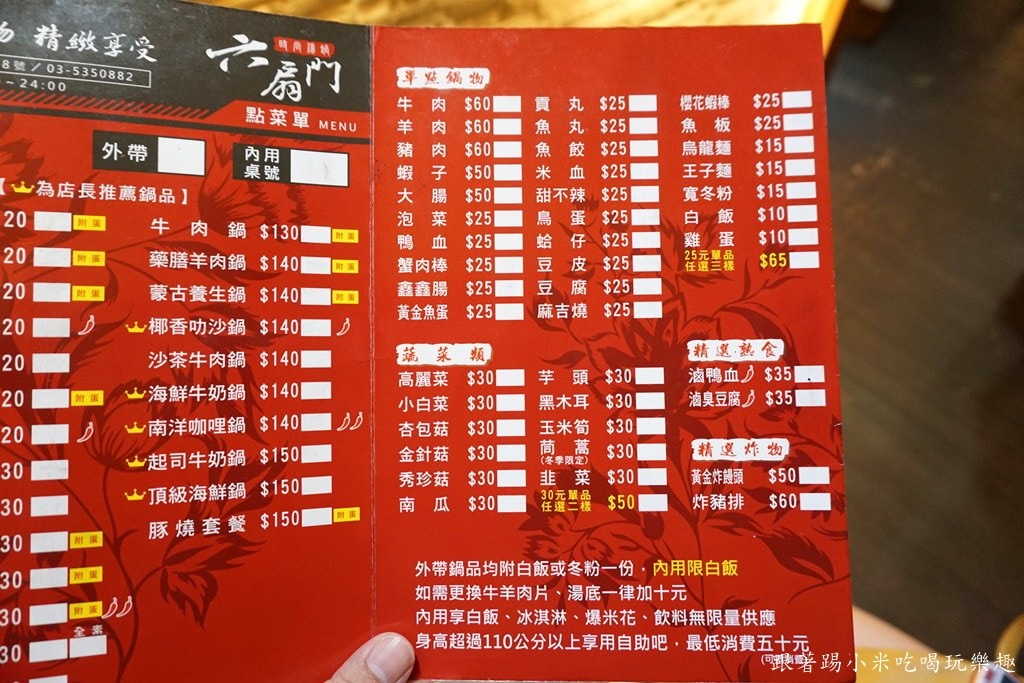 精緻享受
8號／03-5350882
~24:00
六扇門
時尚湯鍋
點菜單 MENU
外帶
內用桌號
【為店長推薦鍋品】
20 附蛋
20 附蛋
20 附蛋
20
20
20 附蛋
20
30
30
30 附蛋
30 附蛋
30 附蛋
全素
30
牛肉鍋 $130 附蛋
藥膳羊肉鍋 $140 附蛋
蒙古養生鍋 $140 附蛋
椰香叻沙鍋 $140
沙茶牛肉鍋 $140
海鮮牛奶鍋 $140
南洋咖哩鍋 $140
起司牛奶鍋 $150
頂級海鮮鍋 $150
豚燒套餐 $150 附蛋
單點鍋物
牛肉 $60
羊肉 $60
豬肉 $60
蝦子 $50
大腸 $50
泡菜 $25
鴨血 $25
蟹肉棒 $25
鑫鑫腸 $25
黃金魚蛋 $25
貢丸 $25
魚丸 $25
魚餃 $25
米血 $25
甜不辣 $25
鳥蛋 $25
蛤仔 $25
豆皮 $25
豆腐 $25
麻吉燒 $25
櫻花蝦棒 $25
魚板 $25
烏龍麵 $15
王子麵 $15
寬冬粉 $15
白飯 $10
雞蛋 $10
25元單品
任選三樣 $65
蔬菜類
高麗菜 $30
小白菜 $30
杏包菇 $30
金針菇 $30
秀珍菇 $30
南瓜 $30
芋頭 $30
黑木耳 $30
玉米筍 $30
茼蒿 $30
(冬季限定)
韭菜 $30
30元單品
任選二樣 $50
精選熟食
滷鴨血 $35
滷臭豆腐 $35
精選炸物
黃金炸饅頭 $50
炸豬排 $60
外帶鍋品均附白飯或冬粉一份，內用限白飯
如需更換牛羊肉片、湯底一律加十元
內用享白飯、冰淇淋、爆米花、飲料無限量供應
身高超過110公分以上享用自助吧，最低消費五十元
跟著踢小米吃喝玩樂趣